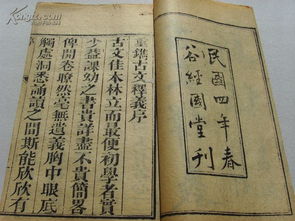 民國四年春
谷經國堂刊
重鐫古文釋義序
古文佳本林立而最便初學者實
少蓋課幼之書貴詳盡不貴簡畧
俾開卷瞭然毫無遺義胸中眼底
觸處洞悉誦讀之間斯能欣欣有